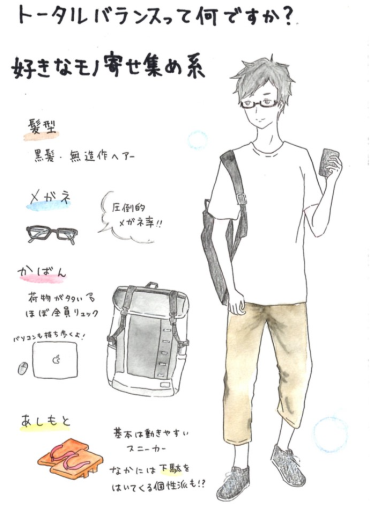 トータルバランスって何ですか？
好きなモノ寄せ集め系
髪型
黒髪・無造作ヘアー
メガネ
圧倒的
メガネ率!!
かばん
荷物が多い為
ほぼ全員リュック
パソコンも持ち歩くよ！
あしもと
基本は動きやすい
スニーカー
なかには下駄を
はいてくる個性派も!?